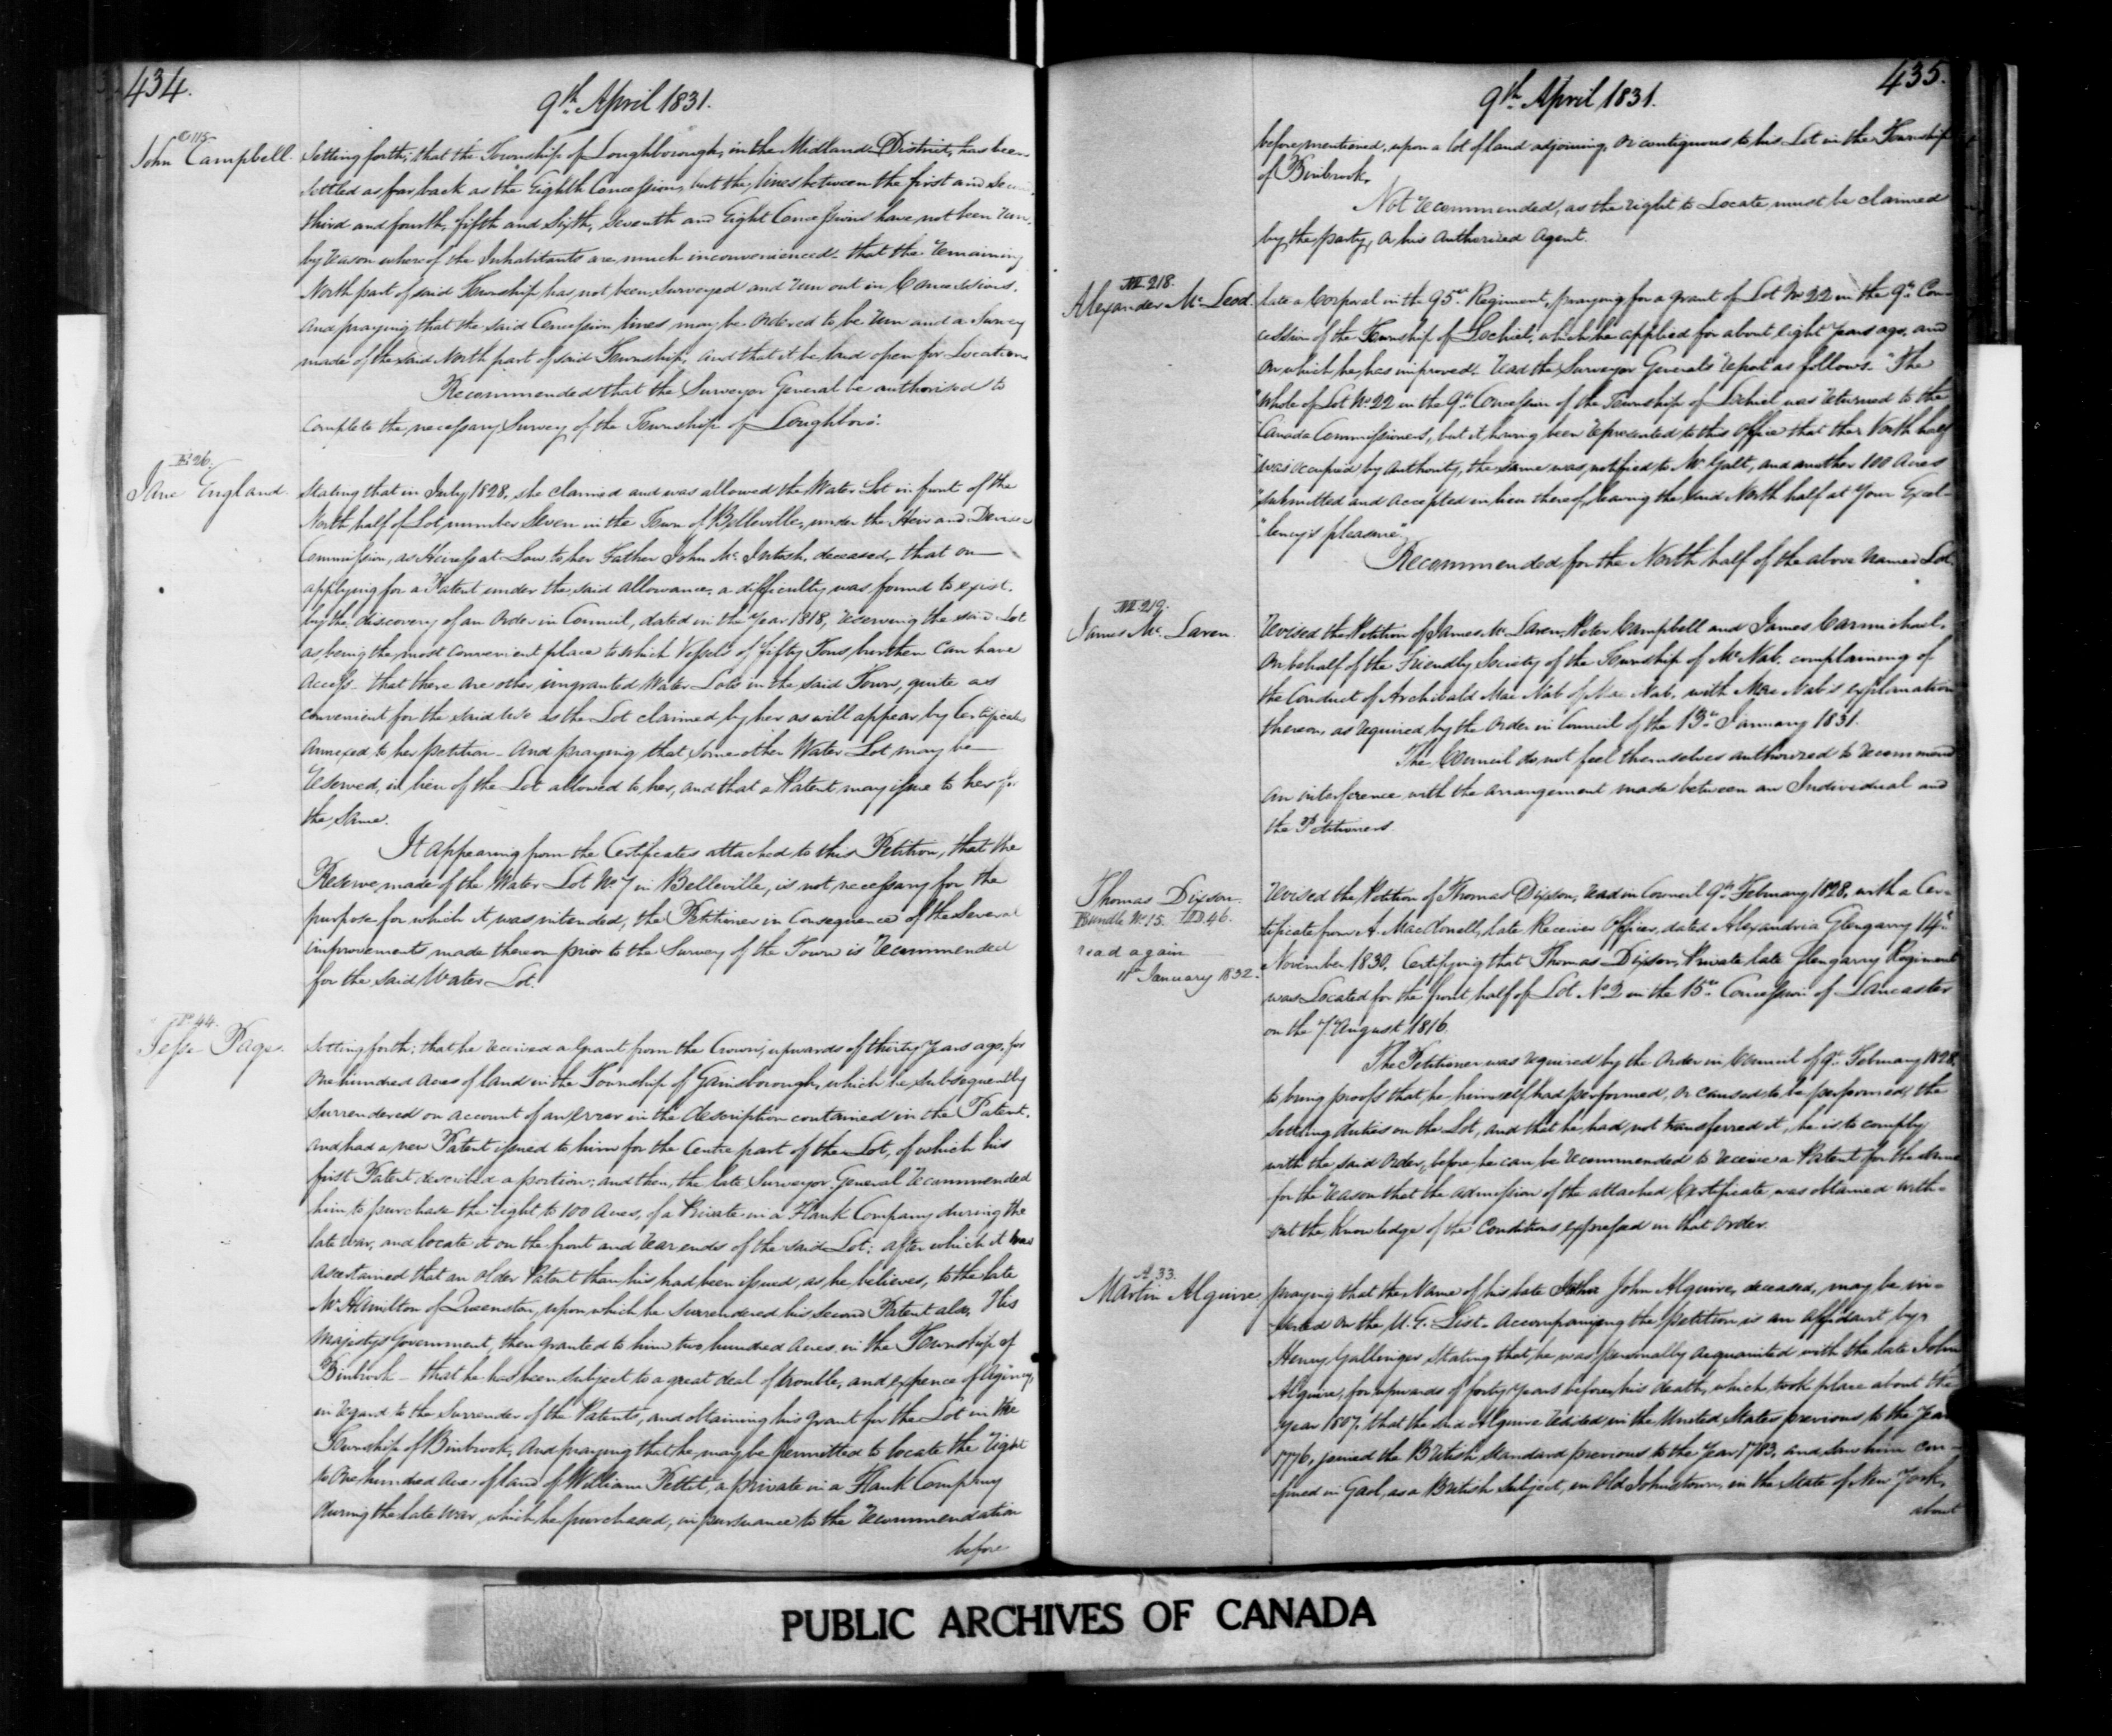 434.
9th April 1831.
C 115.
John Campbell.
Setting forth; that the Township of Loughborough, in the Midland District, has been
settled as far back as the Eighth Concession, but the lines between the first and Second,
third and fourth, fifth and Sixth, Seventh and Eight Concessions have not been run,
by reason whereof the Inhabitants are much inconvenienced - that the remaining
North part of said Township has not been Surveyed and run out in Concessions.
And praying that the said Concession lines may be ordered to be run and a Survey
made of the said North part of said Township; and that it be land open for Location
Recommended that the Surveyor General be authorised to
complete the necessary Survey of the Township of Loughboro'.
E 26.
Jane England.
Stating that in July 1828, she claimed and was allowed the Water Lot in front of the
North half of Lot number Seven in the Town of Belleville, under the Heir and Devisee
Commission, as Heiress at Law to her Father John Mc Intosh, deceased, that on
applying for a Patent under the said allowance, a difficulty was found to exist,
by the discovery of an Order in Council, dated in the Year 1818, reserving the said Lot
as being the most convenient place to which Vessels of fifty Tons burthen can have
access - that there are other ungranted Water Lots in the said Town, quite as
convenient for the said use as the Lot claimed by her as will appear by Certificates
annexed to her petition - And praying that some other Water Lot may be
reserved, in lieu of the Lot allowed to her, and that a Patent may issue to her for
the same.
It appearing from the Certificates attached to this Petition, that the
Reserve made of the Water Lot No. 7 in Belleville, is not necessary for the
purpose for which it was intended, the Petitioner in Consequence of the Several
improvements made thereon prior to the Survey of the Town is recommended
for the said Water Lot.
P 44.
Jesse Page.
Setting forth; that he received a Grant from the Crown, upwards of thirty Years ago, for
One hundred acres of land in the Township of Gainsborough, which he subsequently
surrendered on account of an error in the description contained in the Patent.
And had a new Patent issued to him for the Centre part of the Lot, of which his
first Patent described a portion; and then, the late Surveyor General recommended
him to purchase the right to 100 Acres, of a Private in a Flank Company during the
late War, and locate it on the front and rear ends of the said Lot; after which it was
ascertained that an older Patent than his had been issued, as he believes, to the late
Mr. Hamilton of Queenston, upon which he surrendered his second Patent also, His
Majesty's Government, then granted to him two hundred Acres in the Township of
Binbrook - that he has been subject to a great deal of trouble, and expence of Agency,
in regard to the Surrender of the Patents, and obtaining his grant for the Lot in the
Township of Binbrook, And praying that he may be permitted to locate the right
to One hundred Acres of land of William Pettit, a private in a Flank Company
during the late War, which he purchased, in pursuance to the recommendation
before
435.
9th April 1831.
before mentioned, upon a lot of land adjoining, or contiguous to his Lot in the Township
of Binbrook.
Not recommended, as the right to Locate, must be claimed
by the party, or his Authorized Agent.
M 218.
Alexander Mc Leod.
late a Corporal in the 95th Regiment, praying for a grant of Lot No 22 in the 9th Con-
cession of the Township of Lochiel, which he applied for about eight years ago, and
on which he has improved. Read the Surveyor General's report as follows. "The
"Whole of Lot No. 22 in the 9th Concession of the Township of Lochiel was returned to the
"Canada Commissioners, but it having been represented to this Office that the North half
"was occupied by Authority, the same was notified to Mr. Galt, and another 100 Acres
"submitted and accepted in lieu thereof, leaving the said North half at Your Excel-
"lency's pleasure"
Recommended for the North half of the above named Lot.
M 219.
James Mc Laren.
Revised the Petition of James Mc Laren, Peter Campbell and James Carmichael.
On behalf of the Friendly Society of the Township of Mc Nab, complaining of
the Conduct of Archibald Mac Nab of Mac Nab, with Mac Nab's explanation
thereon, as required by the Order in Council of the 13th January 1831.
The Council do not feel themselves authorized to recommend
an interference with the arrangement made between an Individual and
the Petitioners.
Thomas Dixson.
Bundle No. 15. D 46.
read again
11th January 1832.
Revised the Petition of Thomas Dixson, read in Council 9th February 1828, with a Cer-
tificate from A. MacDonell, late Receiver Officer, dated Alexandria Glengarry 14th
November 1830, Certifying that Thomas Dixson, Private late Glengarry Regiment
was Located for the front half of Lot No 2 in the 15th Concession of Lancaster
on the 7th August 1816.
The Petitioner was required by the Order in Council of 9th February 1828
to bring proofs that he himself had performed, or caused to be performed, the
Settling duties on the Lot, and that he had not transferred it, he is to comply
with the said Order, before he can be recommended to receive a Patent for the same
for the reason that the admission of the attached Certificate was obtained with-
out the knowledge of the Conditions expressed in that Order.
A 33.
Martin Alguire,
praying that the Name of his late Father John Alguire, deceased, may be in-
serted on the U.E. List. Accompanying the petition is an Affidavit by
Henry Gallinger stating that he was personally acquainted with the late John
Alguire, for upwards of forty Years before his death, which took place about the
Year 1807, that the said Alguire resided in the United States previous to the Year
1776, joined the British Standard previous to the Year 1783, and saw him con-
fined in Gaol, as a British Subject, in Old Johnstown, in the State of New York,
about
PUBLIC ARCHIVES OF CANADA